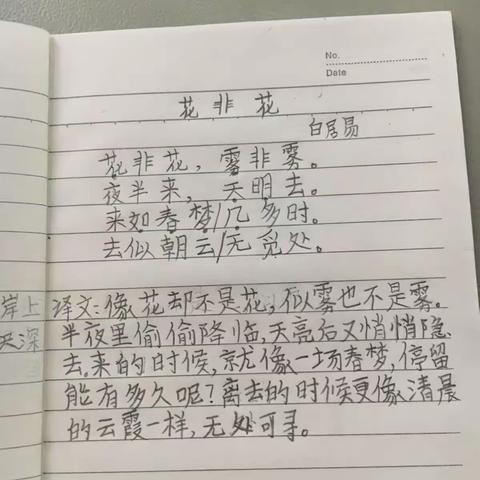 No.
Date
花非花
白居易
花非花，雾非雾。
夜半来，天明去。
来如春梦/几多时。
去似朝云/无觅处。
译文:像花却不是花,似雾也不是雾。
半夜里偷偷降临,天亮后又悄悄隐
去.来的时候,就像一场春梦,停留
能有多久呢?离去的时候更像清晨
的云霞一样,无处可寻。
岸上
天深